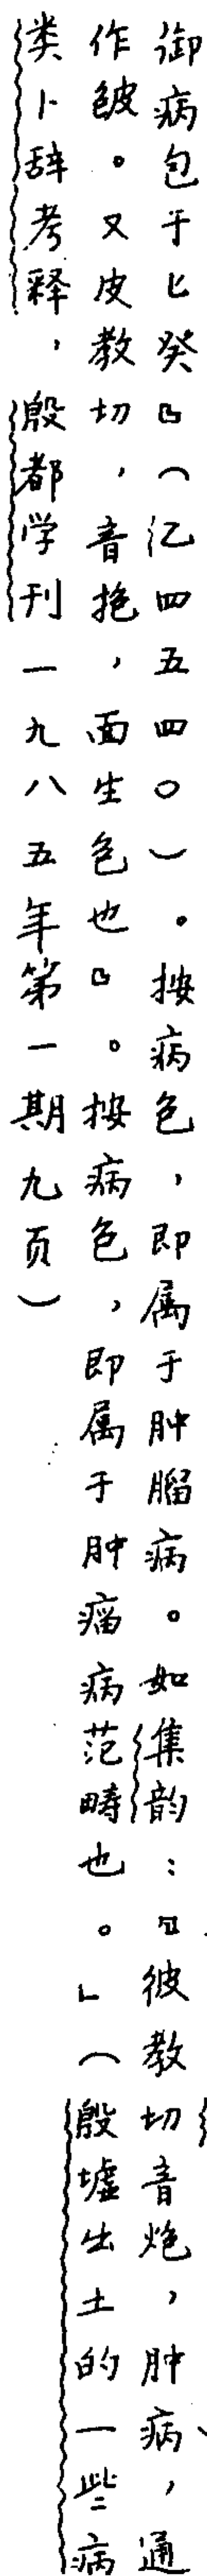 御病包于匕癸』（乙四五四〇）。按病色，即属于肿腦病。如集韵：『彼教切音炮，肿病，通
作皰。又皮教切，音抱，面生色也』。按病色，即属于肿瘤病范畴也。」（殷墟出土的一些病
类卜辞考释，殷都学刊一九八五年第一期九页）